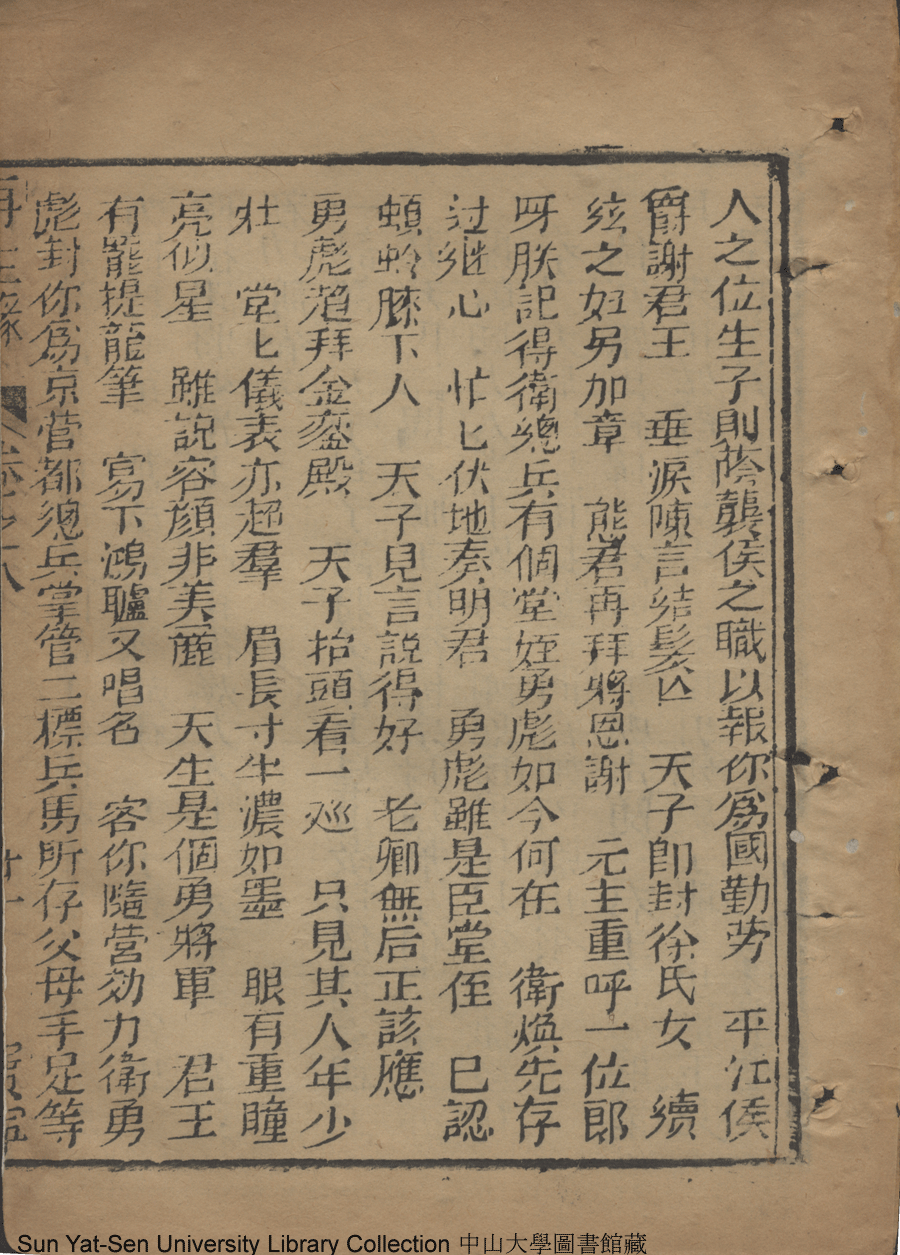 人之位生子則蔭襲侯之職以報你為國勤劳　平江侯
爵謝君王　垂淚陳言結髪亡　天子即封徐氏女　續
絃之妇另加章　熊君再拜將恩謝　元主重呼一位郎
呀朕記得衛總兵有個堂姪勇彪如今何在　衛煥先存
过継心　忙匕伏地奏明君　勇彪雖是臣堂侄　已認
螟蛉膝下人　天子見言説得好　老卿無后正該應
勇彪趋拜金鑾殿　天子抬頭看一巡　只見其人年少
壮　堂匕儀表亦超羣　眉長寸半濃如墨　眼有重瞳
亮似星　雖説容顔非美麗　天生是個勇將軍　君王
有罷提龍筆　寫下鴻臚又唱名　容你隨营効力衛勇
彪封你為京营都總兵掌管二標兵馬所存父母手足等
再生緣　卷之八　廿一
Sun Yat-Sen University Library Collection 中山大學圖書館藏